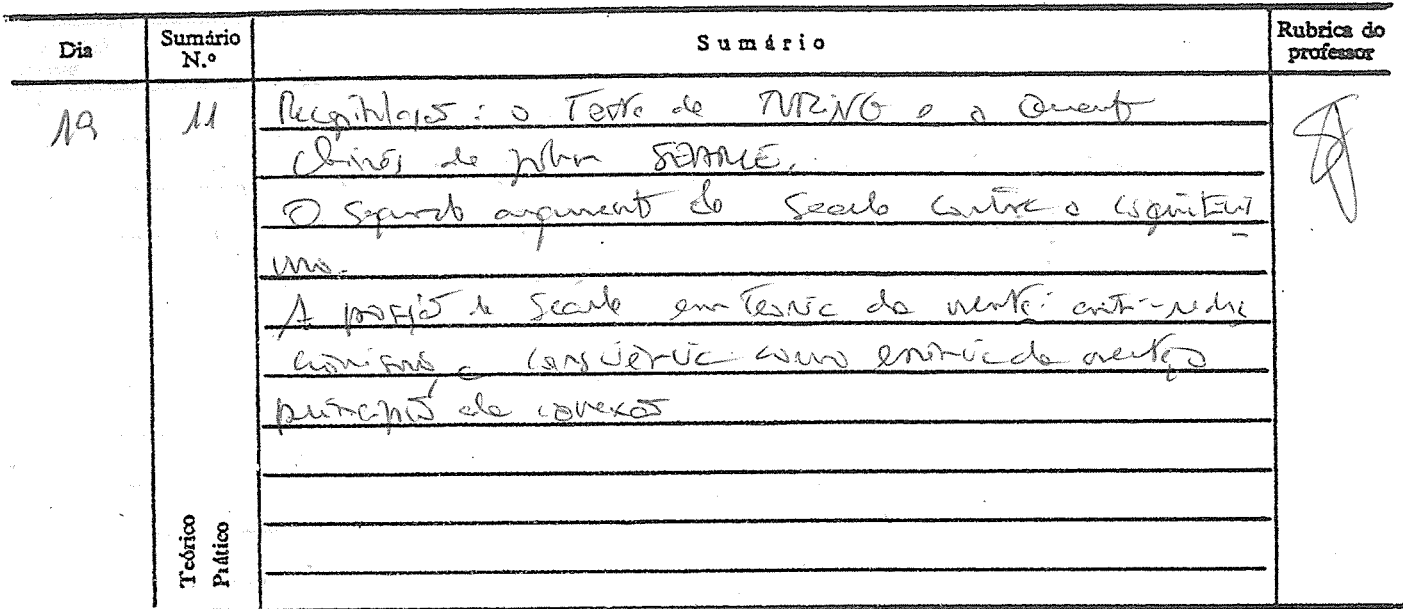 Dia
Sumário N.º
Sumário
Rubrica do professor
19
11
Recapitulação: o Teste de TURING e o Quarto
Chinês de John SEARLE.
O segundo argumento de Searle contra o cognitivis
mo.
A posição de Searle em Teoria da mente: anti-redu
cionismo, consciência como essência da mente,
princípio de conexão
Teórico
Prático